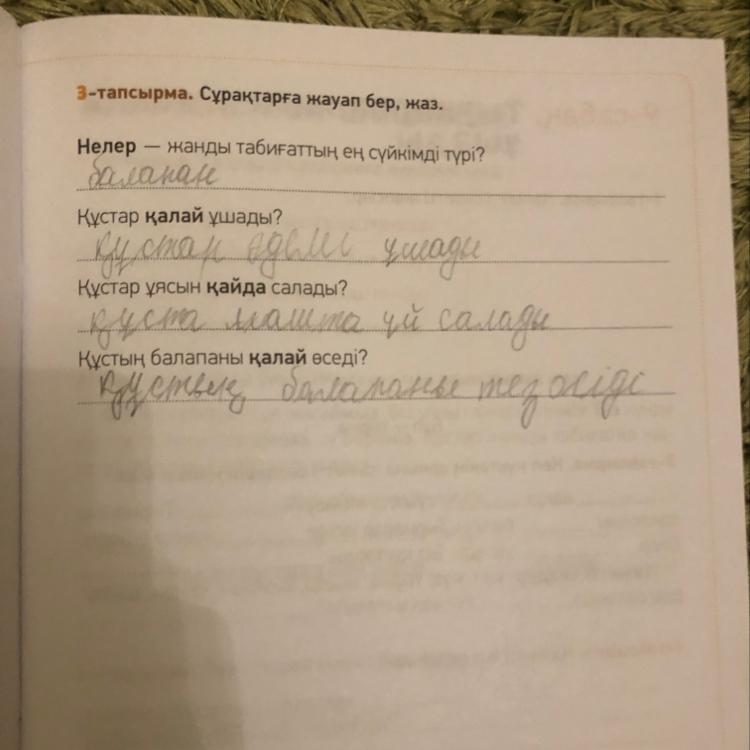 3-тапсырма. Сұрақтарға жауап бер, жаз.
Нелер — жанды табиғаттың ең сүйкімді түрі?
балапан
Құстар қалай ұшады?
құстар әдемі ұшады
Құстар ұясын қайда салады?
құста ағашта үй салады
Құстың балапаны қалай өседі?
құстың балапаны тез өсіді